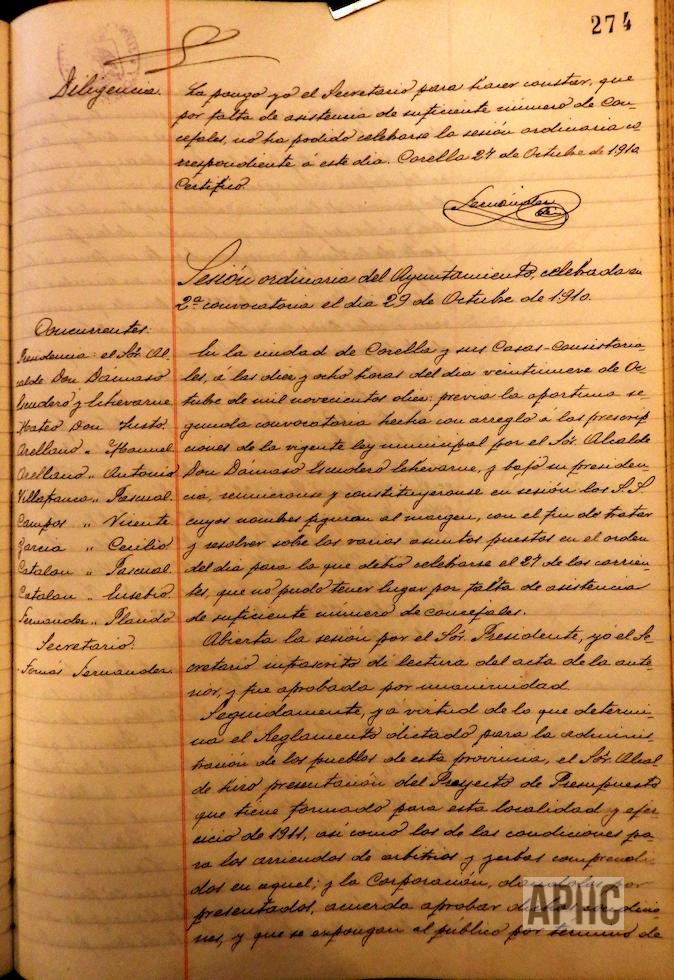 274
Diligencia.
La pongo yo el Secretario para hacer constar, que
por falta de asistencia de suficiente número de con-
cejales, no ha podido celebrarse la sesión ordinaria co-
rrespondiente á este dia. Corella 27 de Octubre de 1910.
Certifico.
Sesión ordinaria del Ayuntamiento, celebrada en
2ª convocatoria el dia 29 de Octubre de 1910.
Concurrentes:
Presidencia: el Sór. Al-
calde Don Dámaso
Escudero y Echevarne
Mateo Don Justo.
Arellano " Manuel
Arellano " Antonio
Villafranca " Pascual
Campos " Vicente
Garcia " Cecilio
Catalan " Pascual
Catalan " Eusebio
Fernandez " Plando
Secretario.
Tomás Fernandez.
En la ciudad de Corella y sus Casas-Consistoria-
les, á las diez y ocho horas del dia veintinueve de Oc-
tubre de mil novecientos diez: previa la oportuna se-
gunda convocatoria hecha con arreglo á las prescrip
ciones de la vigente ley municipal por el Sór. Alcalde
Don Dámaso Escudero Echevarne, y bajo su presiden-
cia, reunieronse y constituyeronse en sesión los S.S.
cuyos nombres figuran al margen, con el fin de tratar
y resolver sobre los varios asuntos puestos en el orden
del dia para la que debió celebrarse el 27 de los corrien-
tes, que no pudo tener lugar por falta de asistencia
de suficiente número de concejales.
Abierta la sesión por el Sór. Presidente, yo el Se-
cretario infrascrito di lectura del acta de la ante-
rior, y fue aprobada por unanimidad.
Seguidamente, y á virtud de lo que determi-
na el Reglamento dictado para la adminis-
tración de los pueblos de esta provincia, el Sór. Alcal
de hizo presentación del Proyecto de Presupuesto
que tiene formado para esta localidad y ejer-
cicio de 1911, así como los de las condiciones pa-
ra los arriendos de arbitrios y yerbas comprendi-
dos en aquel; y la Corporación, dandolos por
presentados, acuerda aprobar
nes, y que se expongan al público por término de
APHC